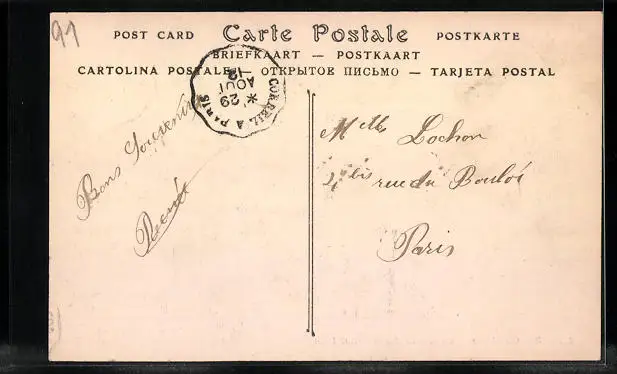 91
POST CARD Carte Postale POSTKARTE
BRIEFKAART — POSTKAART
CARTOLINA POSTALE — ОТКРЫТОЕ ПИСЬМО — TARJETA POSTAL
CORBEIL A PARIS
* 29
AOUT
12
Bons Souvenirs
Renée
Mlle Lochon
bis rue du Bouloi
Paris